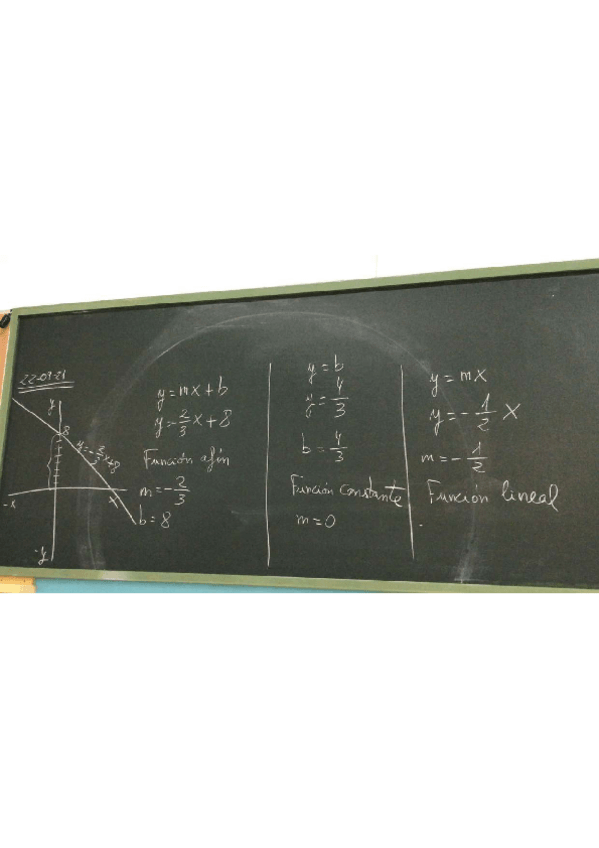 22-09-21
y
8
y=-2/3x+8
-x
x
-y
y=mx+b
y=-2/3x+8
Función afín
m=-2/3
b=8
y=b
y=4/3
b=4/3
Función constante
m=0
y=mx
y=-1/2x
m=-1/2
Función lineal